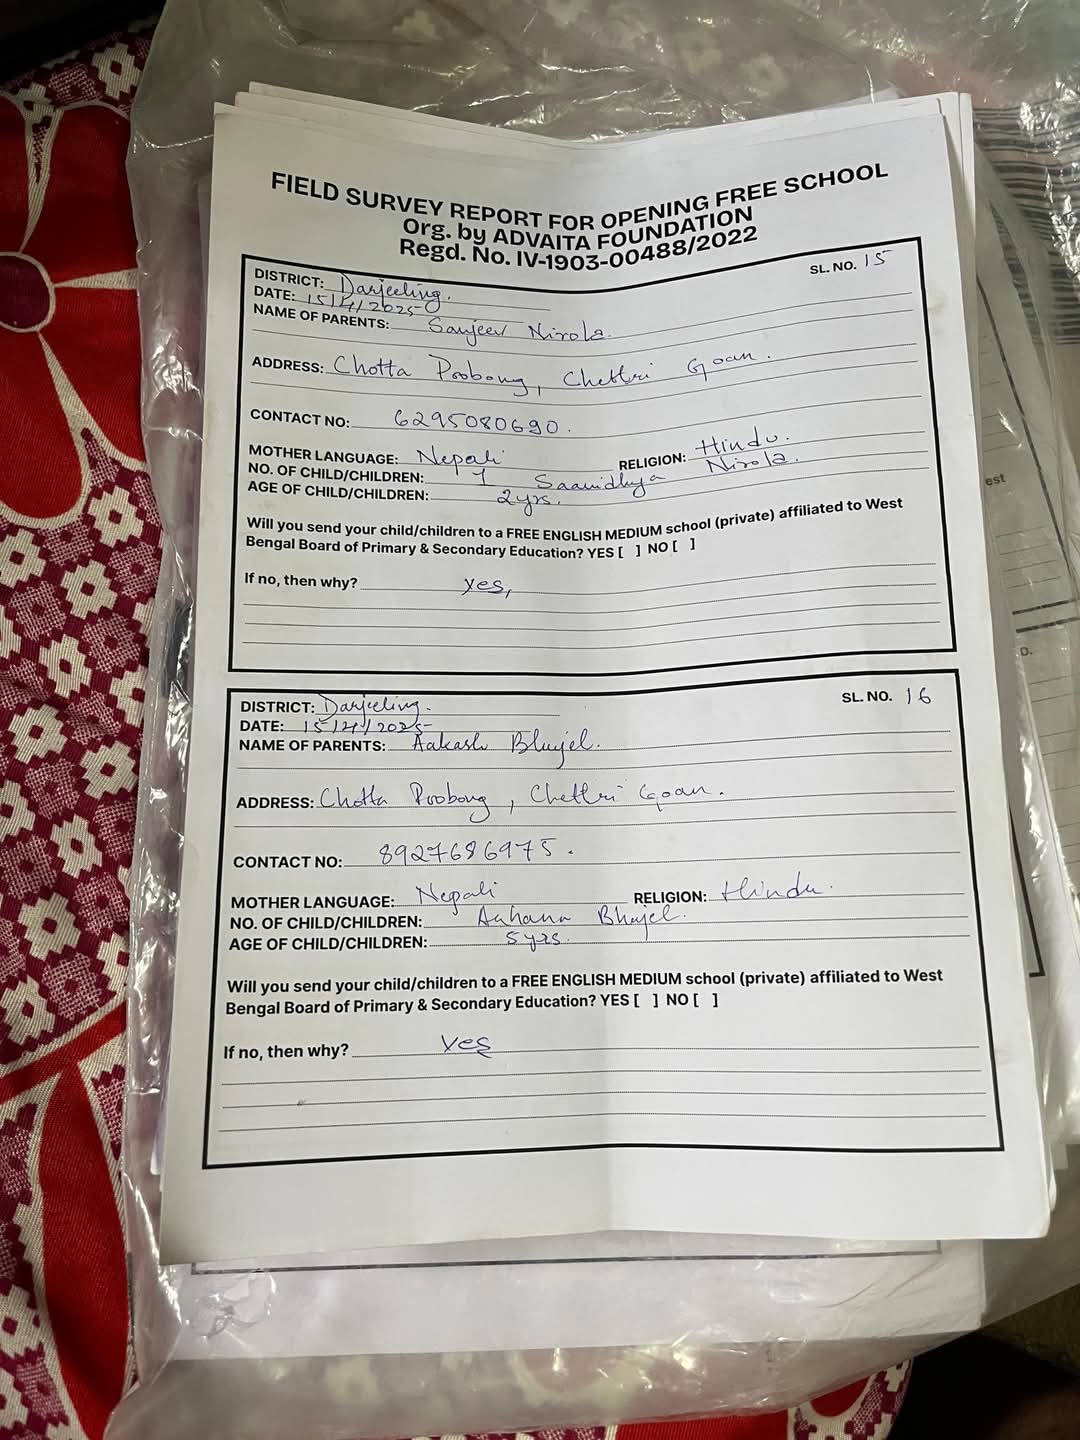 FIELD SURVEY REPORT FOR OPENING FREE SCHOOL
Org. by ADVAITA FOUNDATION
Regd. No. IV-1903-00488/2022
SL. NO. 15
DISTRICT: Darjeeling.
DATE: 15/4/2025
NAME OF PARENTS: Sanjeev Nirola.
ADDRESS: Chotta Poobong, Chettri Goan.
CONTACT NO: 6295080690.
MOTHER LANGUAGE: Nepali RELIGION: Hindu.
NO. OF CHILD/CHILDREN: 1 Saanidhya Nirola.
AGE OF CHILD/CHILDREN: 2yrs.
Will you send your child/children to a FREE ENGLISH MEDIUM school (private) affiliated to West
Bengal Board of Primary & Secondary Education? YES [ ] NO [ ]
If no, then why? yes,
SL. NO. 16
DISTRICT: Darjeeling.
DATE: 15/4/2025
NAME OF PARENTS: Aakash Bhujel.
ADDRESS: Chotta Poobong, Chettri Goan.
CONTACT NO: 8927686975.
MOTHER LANGUAGE: Nepali RELIGION: Hindu.
NO. OF CHILD/CHILDREN: Aahana Bhujel.
AGE OF CHILD/CHILDREN: 5yrs.
Will you send your child/children to a FREE ENGLISH MEDIUM school (private) affiliated to West
Bengal Board of Primary & Secondary Education? YES [ ] NO [ ]
If no, then why? Yes